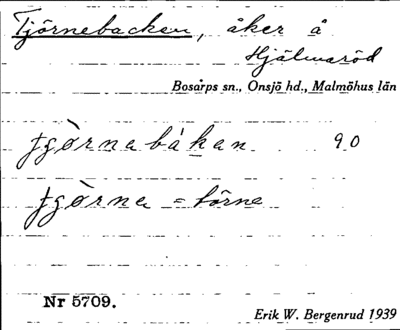 Tjörnebacken, åker å
Hjälmaröd
Bosarps sn., Onsjö hd., Malmöhus län
tjòrnebákan 90
tjòrne = törne
Nr 5709.
Erik W. Bergenrud 1939